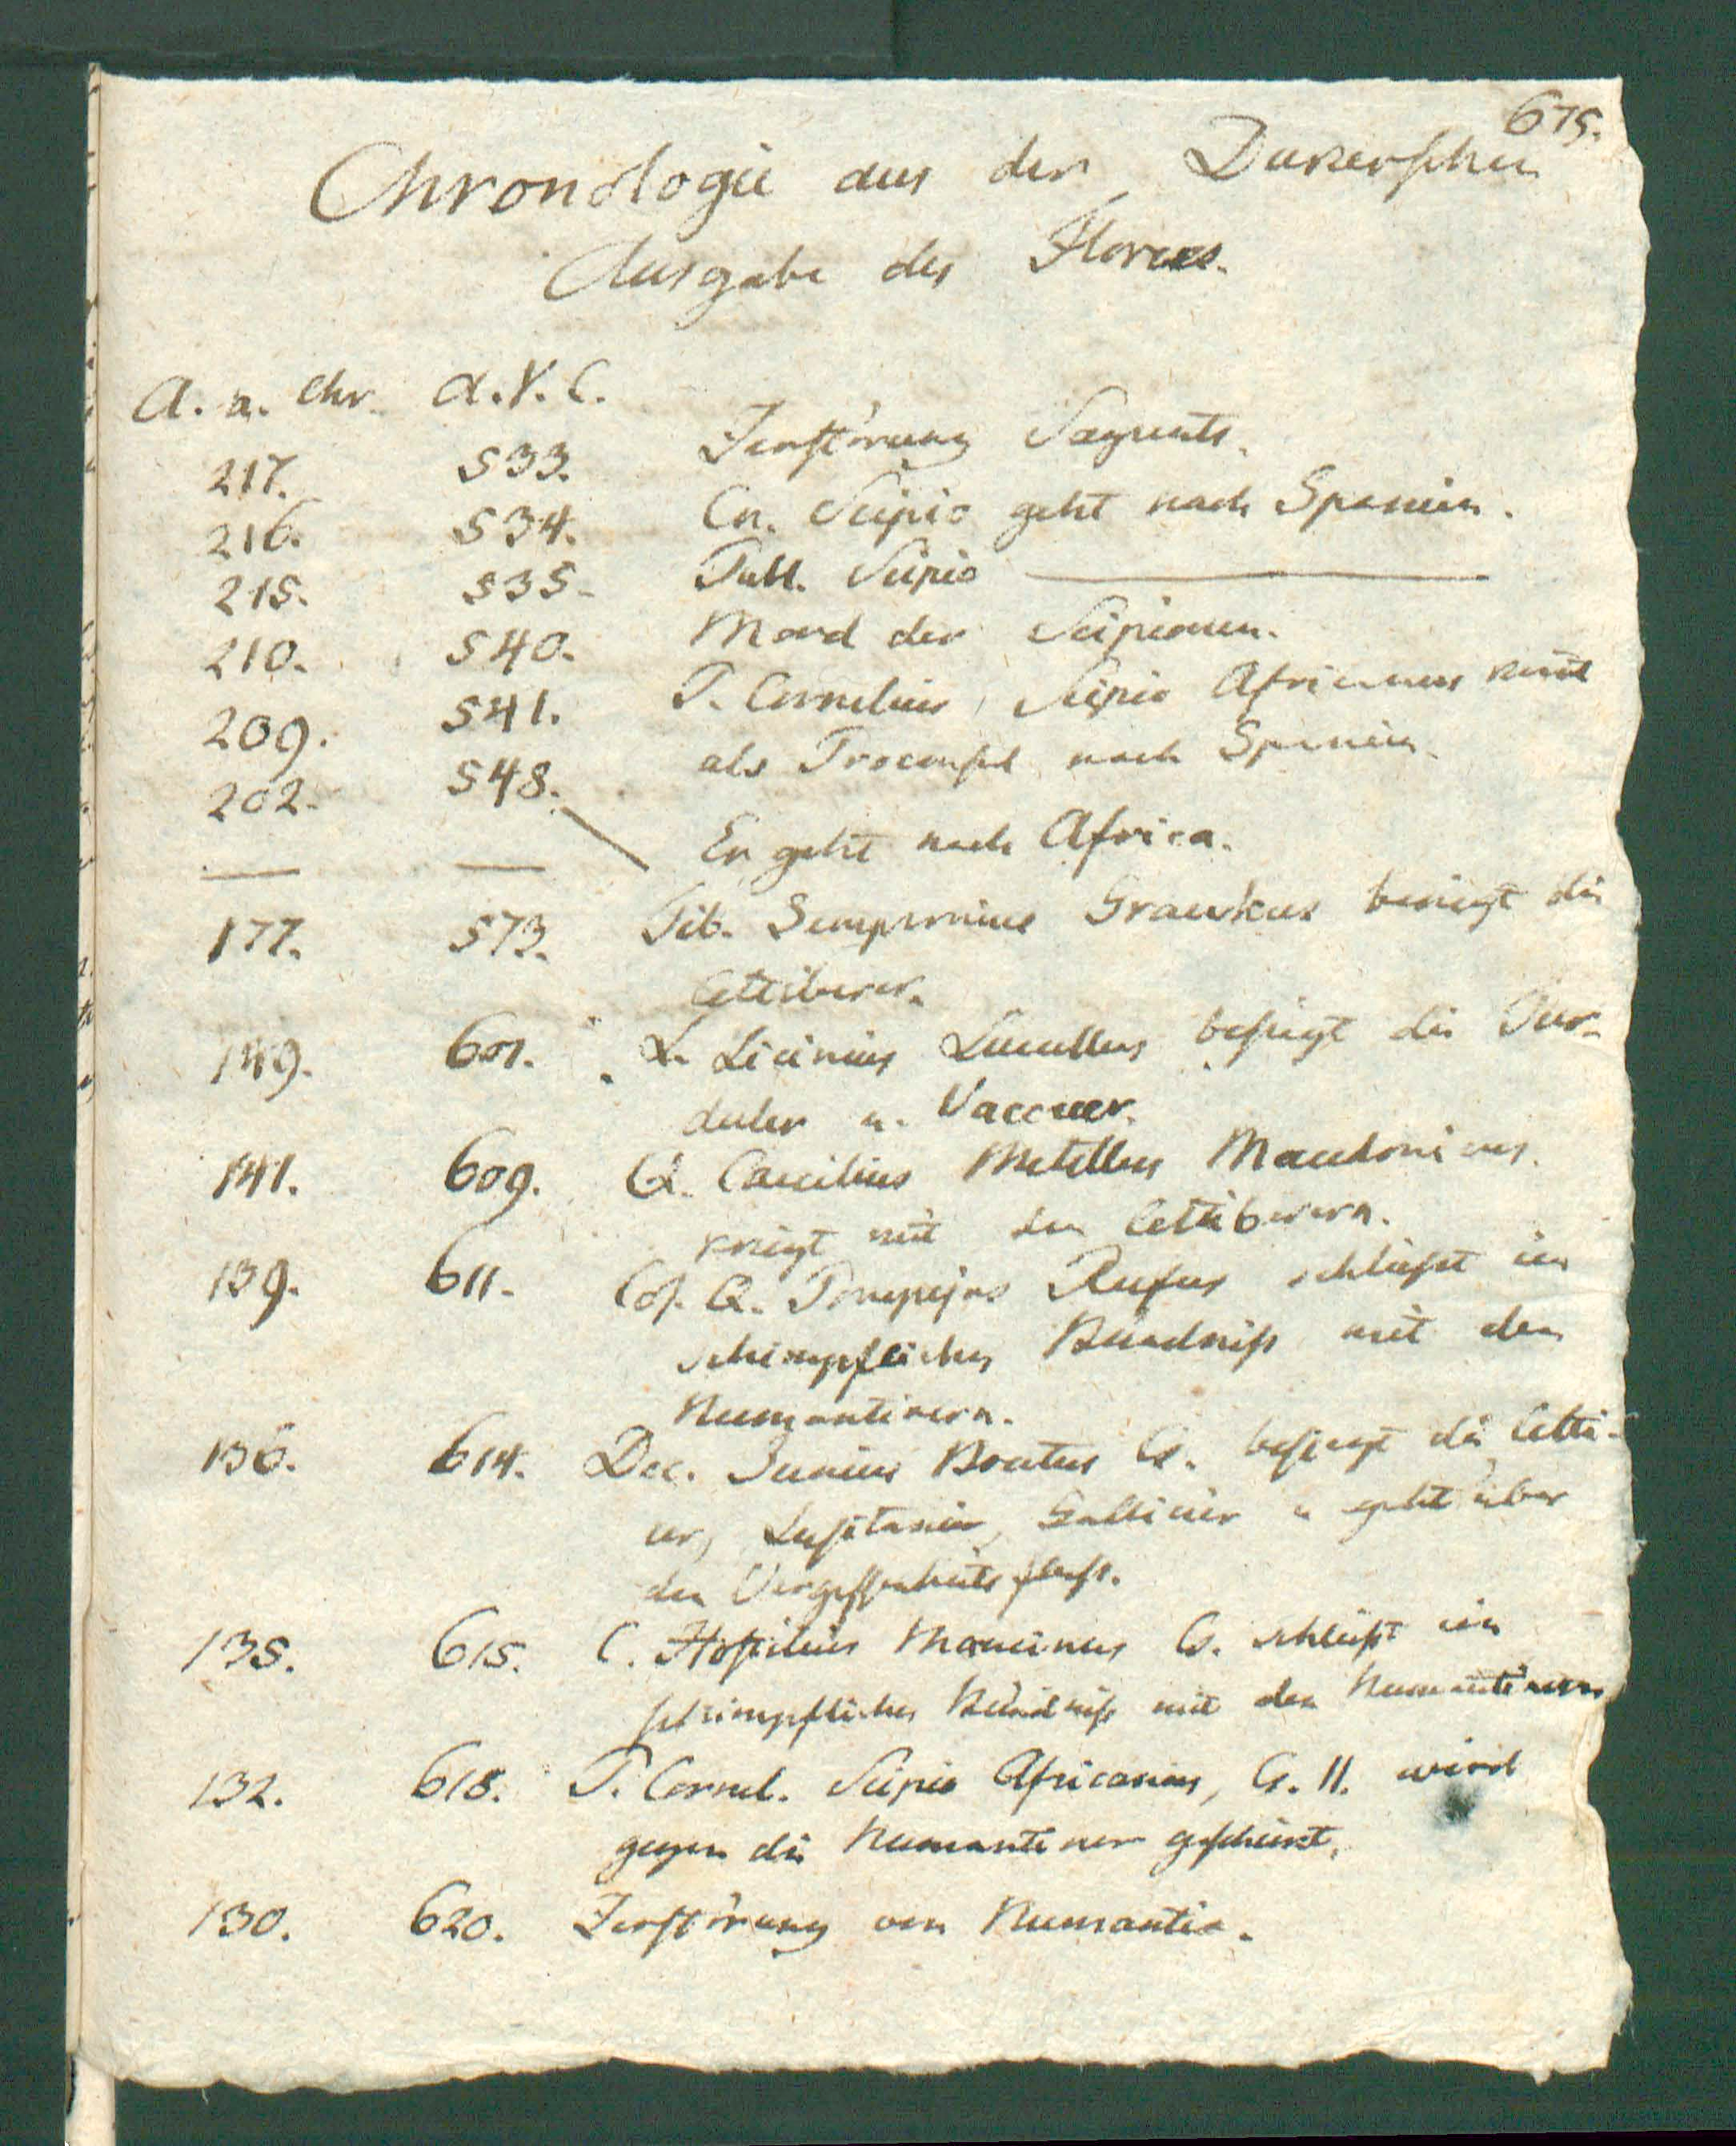 675.
Chronologie aus der Dukerschen
Ausgabe des Florus.
A. a. Chr. A.V.C.
217. 533. Zerstörung Sagunts.
216. 534. Cn. Scipio geht nach Spanien.
215. 535. Publ. Scipio ———
210. 540. Mord der Scipionen.
209. 541. P. Cornelius Scipio Africanus kmt
als Proconsul nach Spanien.
202. 548. Er geht nach Africa.
— —
177. 573. Tib. Sempronius Gracchus besiegt die
Celtiberer.
149. 601. L. Licinius Lucullus besiegt die Tur-
duler u. Vaccaeer.
141. 609. Q. Caecilius Metellus Macedonicus
kriegt mit den Celtiberern.
139. 611. Cos. Q. Pompejus Rufus schließt ein
schimpfliches Bündniß mit den
Numantinern.
136. 614. Dec. Junius Brutus Cs. besiegt die Celti-
er, Lusitanier, Gallicier u geht über
den Vergessenheitsfluß.
135. 615. C. Hostilius Mancinus Cs. schließt ein
schimpfliches Bündniß mit den Numantinern
132. 618. P. Cornel. Scipio Africanus, Cs. II. wird
gegen die Numantiner geschickt.
130. 620. Zerstörung von Numantia.